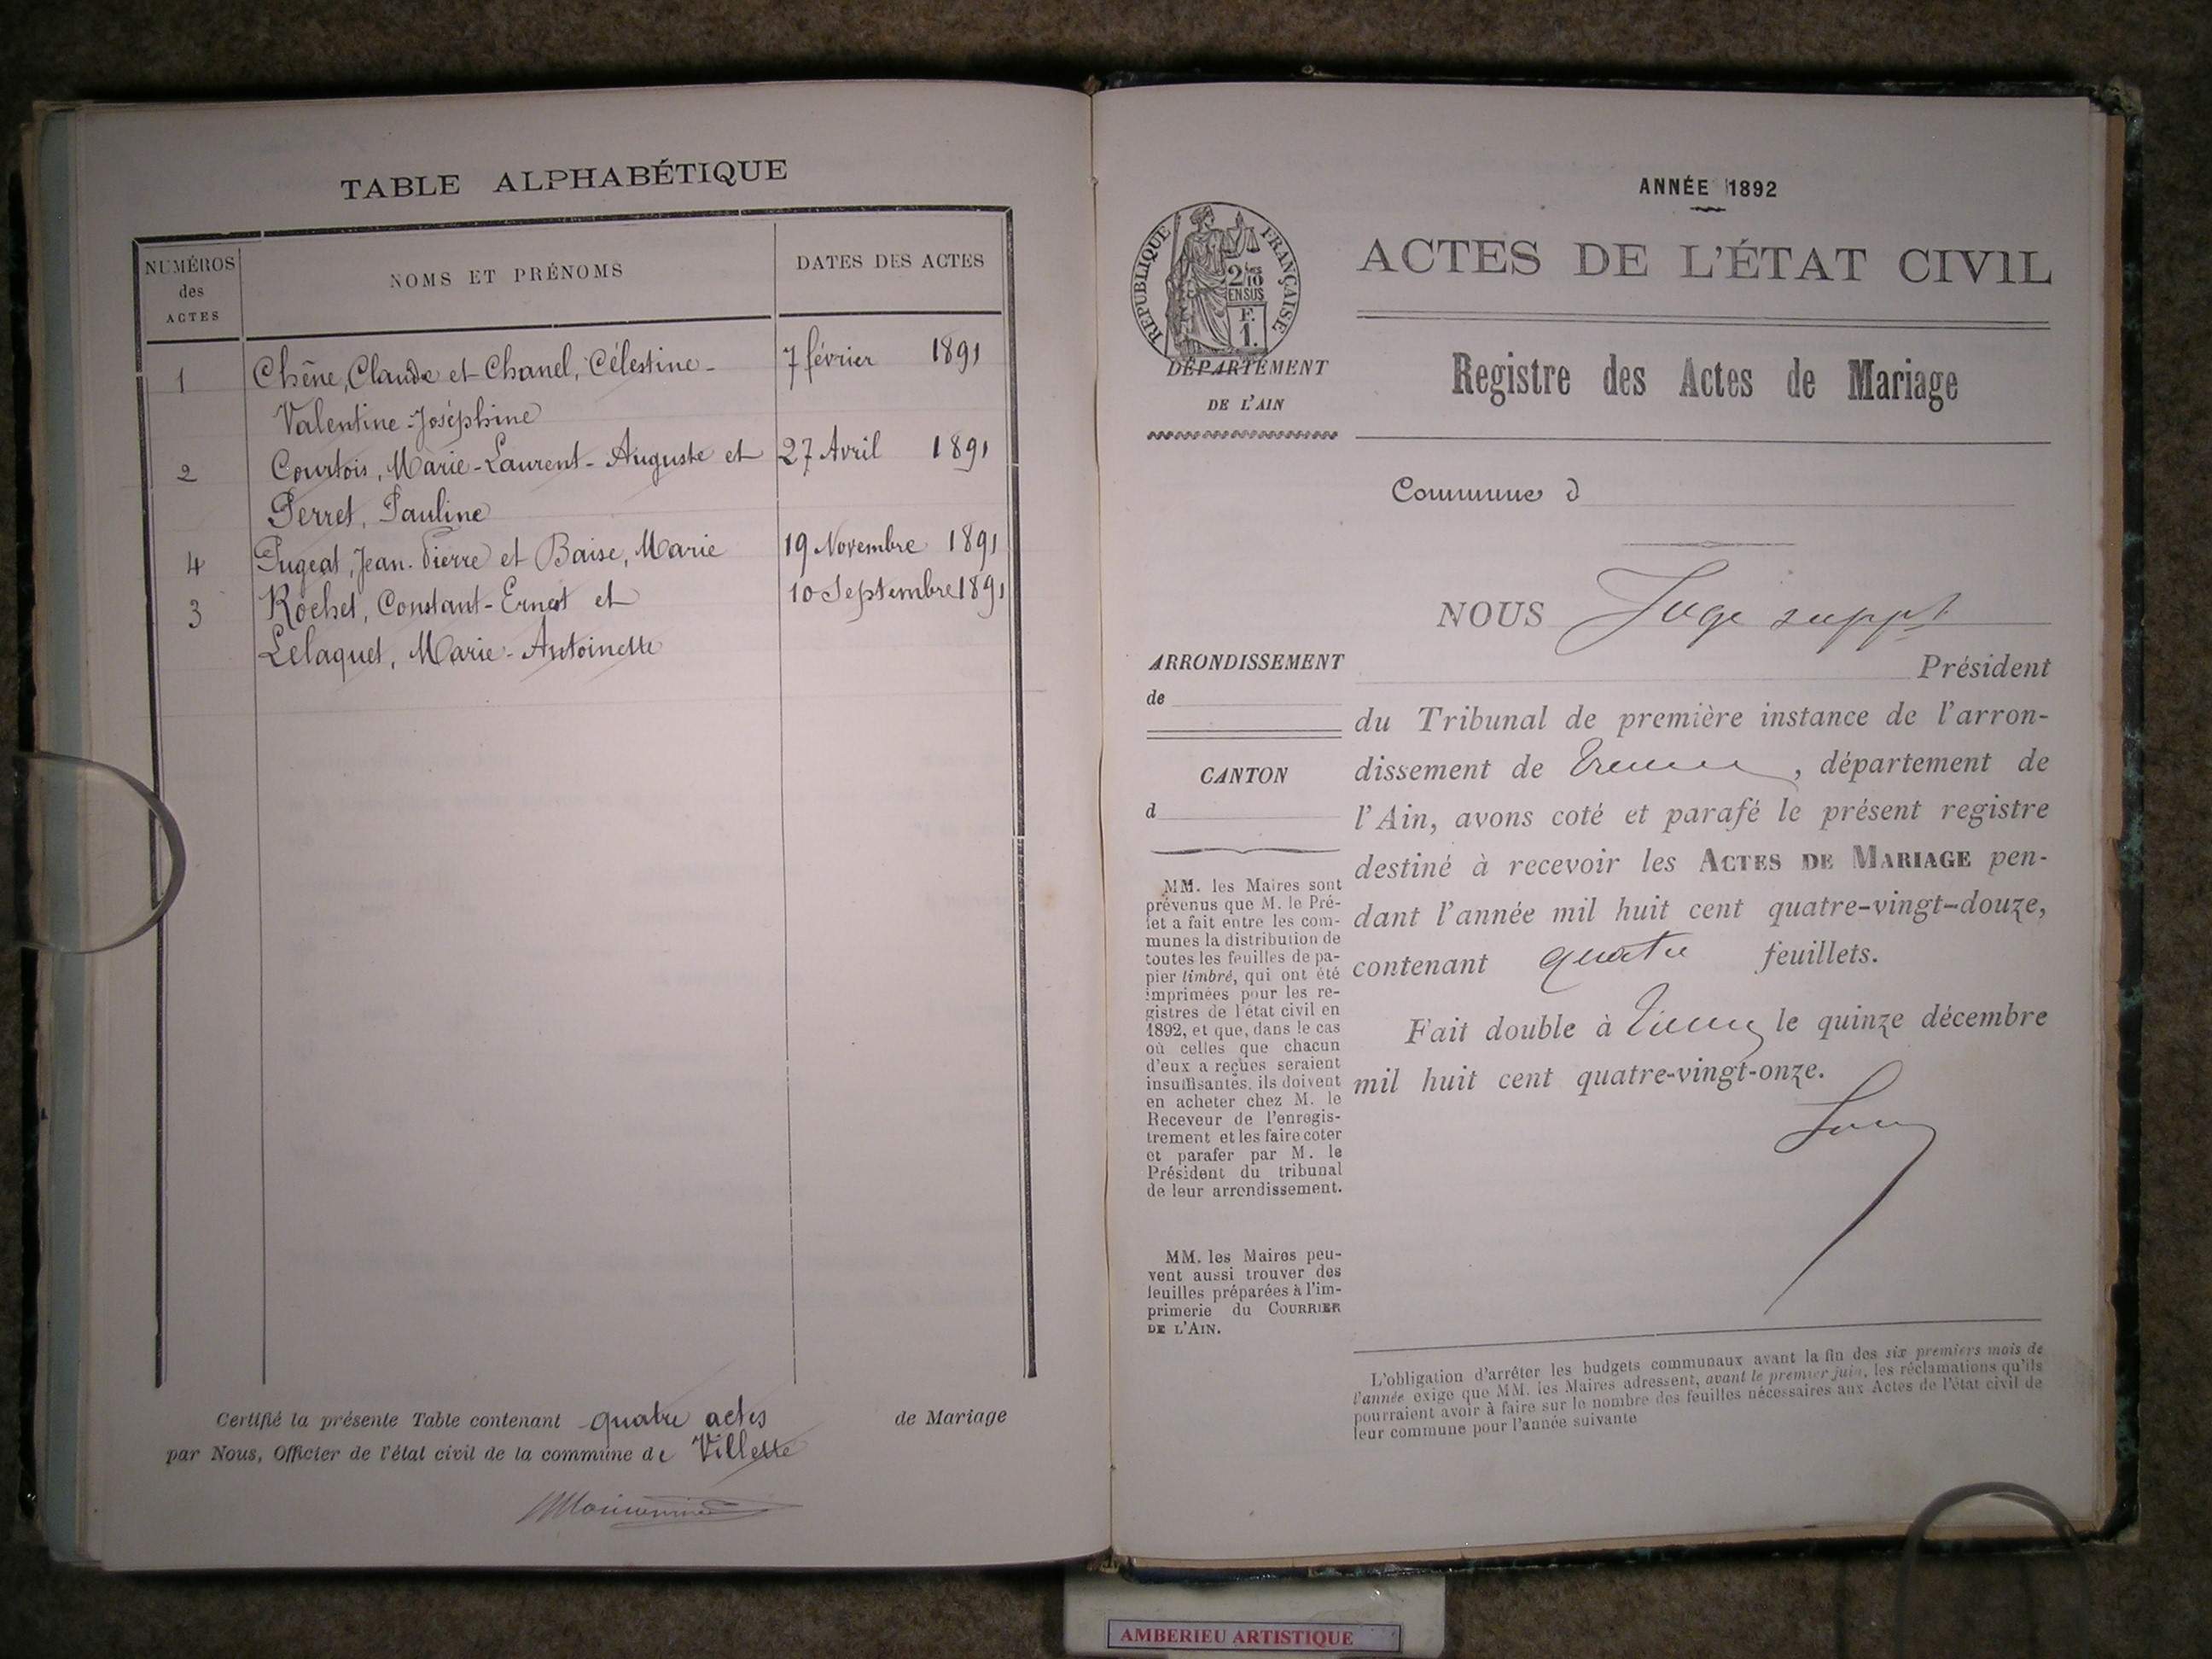 TABLE ALPHABÉTIQUE
NUMÉROS
des
ACTES
NOMS ET PRÉNOMS
DATES DES ACTES
1 Chêne, Claude et Chanel, Célestine- 7 février 1891
Valentine-Joséphine
2 Courtois, Marie-Laurent-Auguste et 27 Avril 1891
Perret, Pauline
4 Pugeat, Jean-Pierre et Baise, Marie 19 Novembre 1891
3 Rochet, Constant-Ernest et 10 Septembre 1891
Lelaquet, Marie-Antoinette
Certifié la présente Table contenant quatre actes de Mariage
par Nous, Officier de l'état civil de la commune de Villette
ANNÉE 1892
RÉPUBLIQUE FRANÇAISE
2/10
EN SUS
F.
1.
ACTES DE L'ÉTAT CIVIL
DÉPARTEMENT
DE L'AIN
Registre des Actes de Mariage
Commune d
NOUS Juge suppt
Président
ARRONDISSEMENT
de
CANTON
d
du Tribunal de première instance de l'arron-
dissement de , département de
l'Ain, avons coté et parafé le présent registre
destiné à recevoir les ACTES DE MARIAGE pen-
dant l'année mil huit cent quatre-vingt-douze,
contenant quatre feuillets.
Fait double à le quinze décembre
mil huit cent quatre-vingt-onze.
MM. les Maires sont
prévenus que M. le Pré-
fet a fait entre les com-
munes la distribution de
toutes les feuilles de pa-
pier timbré, qui ont été
imprimées pour les re-
gistres de l'état civil en
1892, et que, dans le cas
où celles que chacun
d'eux a reçues seraient
insuffisantes, ils doivent
en acheter chez M. le
Receveur de l'enregis-
trement et les faire coter
et parafer par M. le
Président du tribunal
de leur arrondissement.
MM. les Maires peu-
vent aussi trouver des
feuilles préparées à l'im-
primerie du COURRIER
DE L'AIN.
L'obligation d'arrêter les budgets communaux avant la fin des six premiers mois de
l'année exige que MM. les Maires adressent, avant le premier juin, les réclamations qu'ils
pourraient avoir à faire sur le nombre des feuilles nécessaires aux Actes de l'état civil de
leur commune pour l'année suivante
AMBERIEU ARTISTIQUE